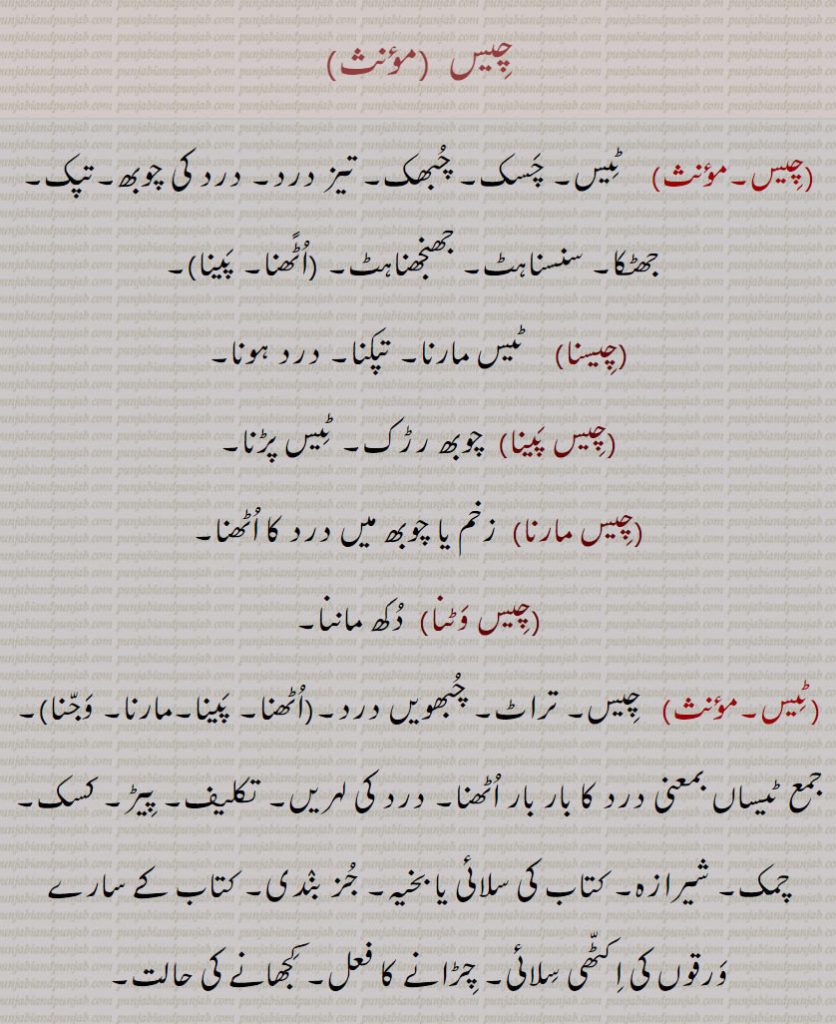 چِیس (مؤنث)
(چِیس۔مؤنث) ٹِیس۔ چَسک۔ چُبھک۔ تیز درد۔ درد کی چوبھ۔تپک۔
جھٹکا۔ سنسناہٹ۔ جھنجھناہٹ۔ (اُٹّھنا۔ پَینا)۔
(چِیسنا) ٹیس مارنا۔ تپکنا۔ درد ہونا۔
(چِیس پَینا) چوبھ رڑک۔ ٹِیس پڑنا۔
(چِیس مارنا) زخم یا چوبھ میں درد کا اُٹھنا۔
(چِیس وَٹنا) دُکھ ماننا۔
(ٹِیس۔مؤنث) چِیس۔ تراٹ۔ چُبھویں درد۔(اُٹھنا۔ پَینا۔مارنا۔ وَجّنا)۔
جمع ٹیساں بمعنی درد کا بار بار اُٹھنا۔ درد کی لہریں۔ تکلیف۔ پِیڑ۔ کسک۔
چمک۔ شیرازہ۔ کتاب کی سلائی یا بخیہ۔ جُز بنْدی۔ کتاب کے سارے
وَرقوں کی اِکٹّھی سِلائی۔ چِڑانے کا فعل۔ کَجھانے کی حالت۔